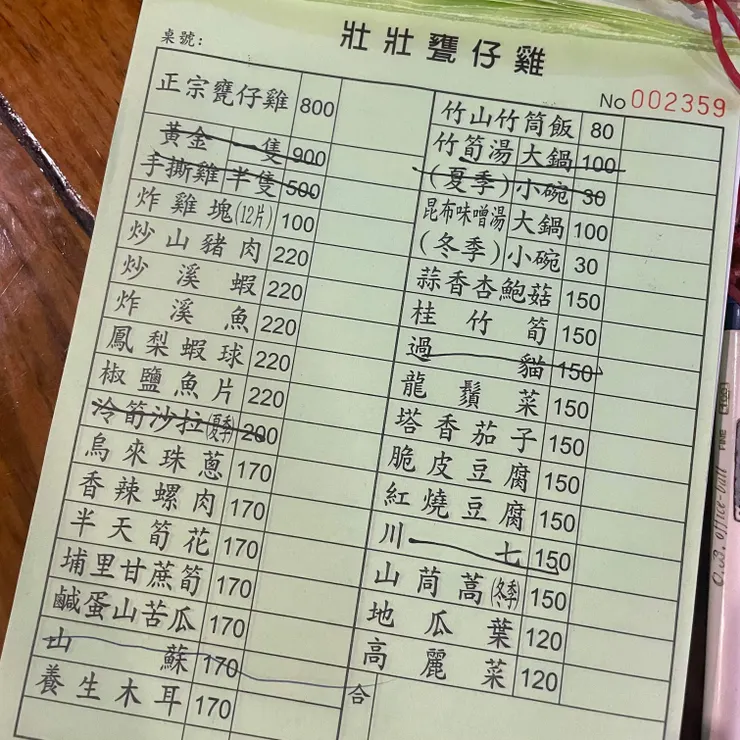 壯壯甕仔雞
桌號:
No 002359
正宗甕仔雞 800
黃金 一隻 900
手撕雞 半隻 500
炸雞塊(12片) 100
炒山豬肉 220
炒溪蝦 220
炸溪魚 220
鳳梨蝦球 220
椒鹽魚片 220
冷筍沙拉(夏季) 200
烏來珠蔥 170
香辣螺肉 170
半天筍花 170
埔里甘蔗筍 170
鹹蛋山苦瓜 170
山蘇 170
養生木耳 170
竹山竹筒飯 80
竹筍湯 大鍋 100
(夏季) 小碗 30
昆布味噌湯 大鍋 100
(冬季) 小碗 30
蒜香杏鮑菇 150
桂竹筍 150
過貓 150
龍鬚菜 150
塔香茄子 150
脆皮豆腐 150
紅燒豆腐 150
川七 150
山茼蒿(冬季) 150
地瓜葉 120
高麗菜 120
合
O.B. office-ball
FINE